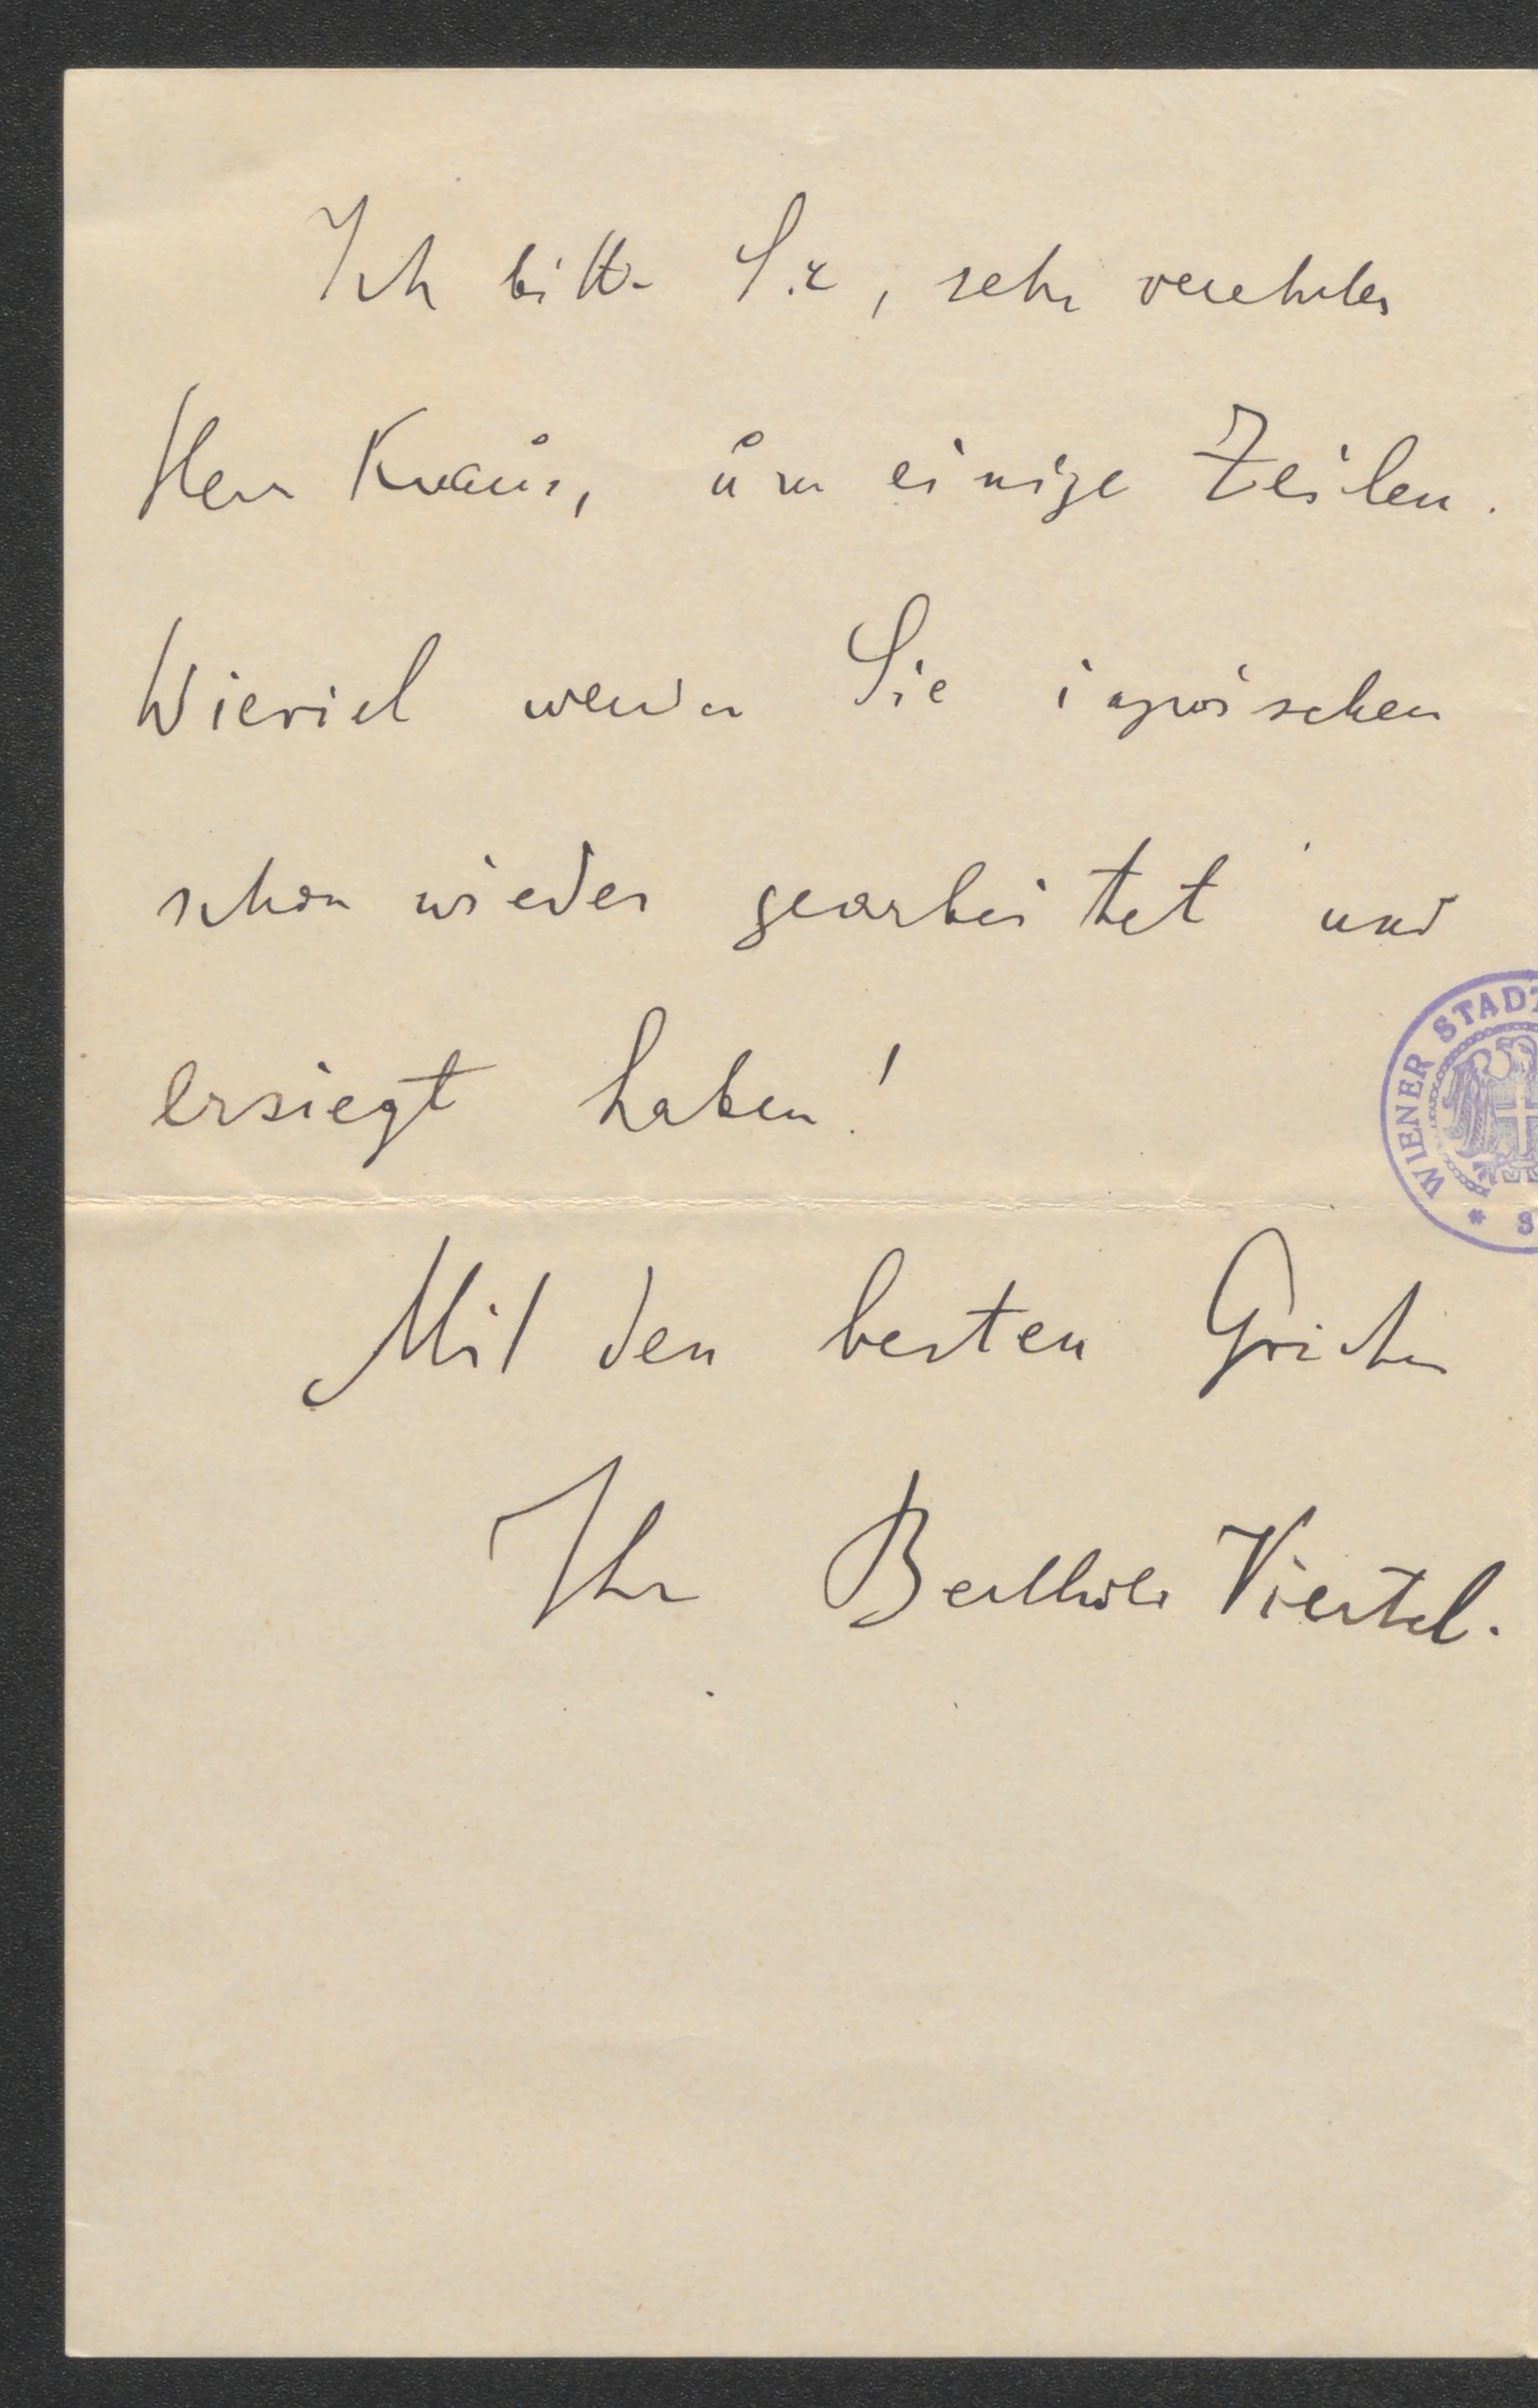 Ich bitte Sie, sehr verehrter
Herr Kraus, um einige Zeilen.
Wieviel werden Sie inzwischen
schon wieder gearbeitet und
ersiegt haben!
WIENER STADT
* S
Mit den besten Grüßen
Ihr Berthold Viertel.